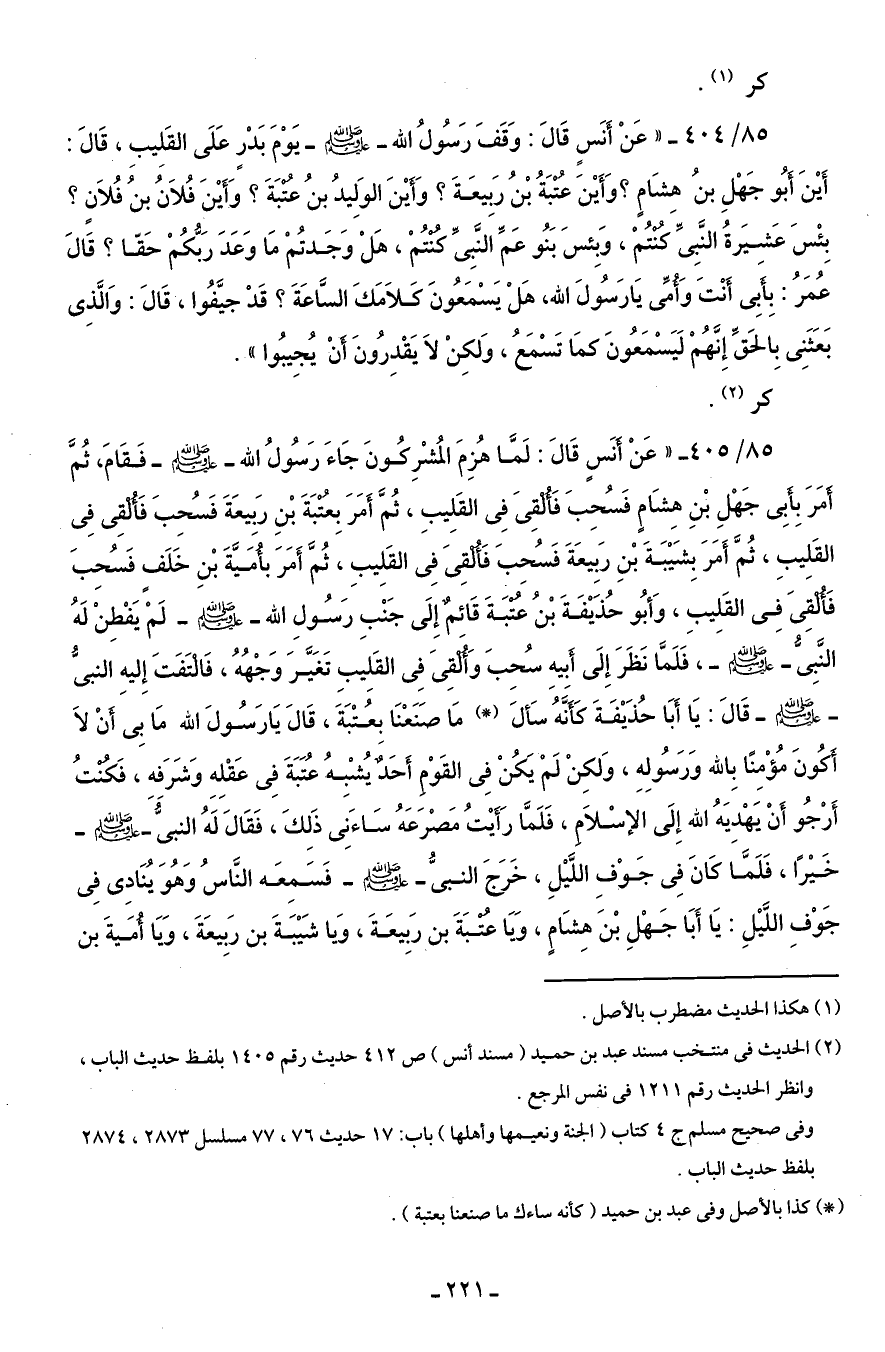 كر (١) .
٤٠٤/٨٥ ـ « عَنْ أَنَسٍ قَالَ : وَقَفَ رَسُولُ الله ـ ﷺ ـ يَوْمَ بَدْرٍ عَلَى القَلِيبِ ، قَالَ :
أَيْنَ أَبُو جَهْلِ بنُ هِشَامٍ ؟ وَأَيْنَ عُتْبَةُ بْنُ رَبِيعَةَ ؟ وَأَيْنَ الوَلِيدُ بنُ عُتْبَةَ ؟ وَأَيْنَ فُلاَنُ بنُ فُلاَنٍ ؟
بِئْسَ عَشِيرَةُ النَّبِىِّ كُنْتُمْ ، وَبِئسَ بَنُو عَمِّ النَّبِىِّ كُنْتُمْ ، هَلْ وَجَدتُمْ مَا وَعَدَ رَبُّكُمْ حَقّا ؟ قَالَ
عُمَرُ : بِأَبِى أَنْتَ وَأُمِّى يَارَسُولَ الله، هَلْ يَسْمَعُونَ كَلاَمَكَ السَّاعَةَ ؟ قَدْ جيَّفُوا ، قَالَ : وَالَّذِى
بَعَثَنِى بِالحَقِّ إِنَّهُمْ لَيَسْمَعُونَ كَمَا تَسْمَعُ ، وَلَكِنْ لاَ يَقْدِرُونَ أَنْ يُجِيبُوا » .
كر (٢) .
٤٠٥/٨٥ ـ « عَنْ أَنَسٍ قَالَ : لَمَّا هُزِمَ المُشْرِكُونَ جَاءَ رَسُولُ الله ـ ﷺ ـ فَقَامَ، ثُمَّ
أَمَرَ بِأَبِى جَهْلِ بْنِ هِشَامٍ فَسُحِبَ فَأُلْقِىَ فِى القَلِيبِ ، ثُمَّ أَمَرَ بِعُتْبَةَ بْنِ رَبِيعَةَ فَسُحِبَ فَأُلْقِى فِى
القَلِيبِ ، ثُمَّ أَمَرَ بِشَيْبَةَ بْنِ رَبِيعَةَ فَسُحِبَ فَأُلْقِىَ فِى القَلِيبِ ، ثُمَّ أَمَرَ بِأُمَيَّةَ بْنِ خَلَفٍ فَسُحِبَ
فَأُلْقِىَ فِى القَلِيبِ ، وَأَبُو حُذَيْفَةَ بْنُ عُتْبَةَ قَائِمٌ إِلَى جَنْبِ رَسُولِ الله ـ ﷺ ـ لَمْ يَفْطِنْ لَهُ
النَّبِىُّ ـ ﷺ ـ ، فَلَمَّا نَظَرَ إِلَى أَبِيهِ سُحِبَ وَأُلْقِىَ فِى القَلِيبِ تَغَيَّرَ وَجْهُهُ ، فَالْتَفَتَ إِليه النبىُّ
ـ ﷺ ـ قَالَ : يَا أَبَا حُذَيْفَةَ كَأَنَّهُ سَأَلَ (*) مَا صَنَعْنَا بِعُتْبَةَ ، قَالَ يَارَسُولَ الله مَا بِى أَنْ لاَ
أَكُونَ مُؤْمِنًا بِالله وَرَسُولِهِ ، وَلَكِنْ لَمْ يَكُنْ فِى القَوْمِ أَحَدٌ يُشْبِهُ عُتَبَةَ فِى عَقْلِهِ وَشَرَفِهِ ، فَكُنْتُ
أَرْجُو أَنْ يَهْدِيَهُ الله إِلَى الإِسْلاَمِ ، فَلَمَّا رَأَيْتُ مَصْرَعَهُ سَاءَنِى ذَلِكَ ، فَقَالَ لَهُ النبىُّ ـ ﷺ ـ
خَيْرًا ، فَلَمَّا كَانَ فِى جَوْفِ اللَّيْلِ ، خَرَجَ النبىُّ ـ ﷺ ـ فَسَمِعَه النَّاسُ وَهُوَ يُنَادِى فِى
جَوْفِ اللَّيْلِ : يَا أَبَا جَهْلِ بْنَ هِشَامٍ ، وَيَا عُتْبَةَ بن رَبِيعَةَ ، ويَا شَيْبَةَ بن رَبِيعَةَ ، وَيَا أُمَيةَ بن
(١) هكذا الحديث مضطرب بالأصل .
(٢) الحديث فى منتخب مسند عبد بن حميد ( مسند أنس ) ص ٤١٢ حديث رقم ١٤٠٥ بلفظ حديث الباب ،
وانظر الحديث رقم ١٢١١ فى نفس المرجع .
وفى صحيح مسلم ج ٤ كتاب ( الجنة ونعيمها وأهلها ) باب: ١٧ حديث ٧٦ ، ٧٧ مسلسل ٢٨٧٣ ، ٢٨٧٤
بلفظ حديث الباب .
(*) كذا بالأصل وفى عبد بن حميد ( كأنه ساءك ما صنعنا بعتبة ) .
ـ ٢٢١ ـ